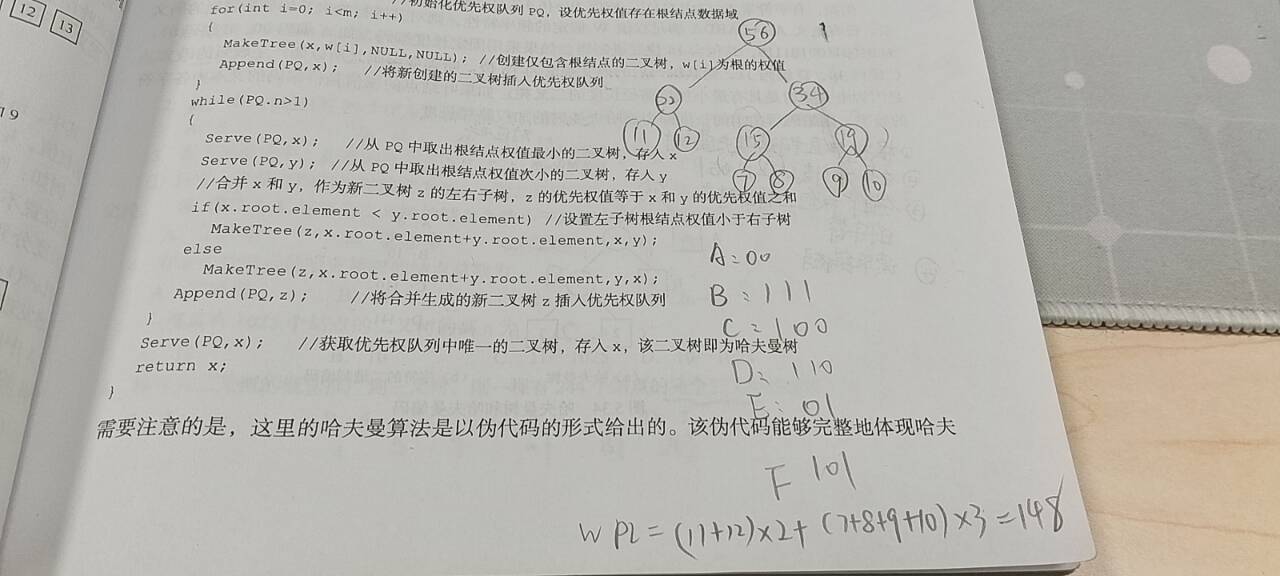 12 13
19
//初始化优先权队列 PQ，设优先权值存在根结点数据域
for(int i=0; i<m; i++)
{
MakeTree(x,w[i],NULL,NULL); //创建仅包含根结点的二叉树，w[i]为根的权值
Append(PQ,x); //将新创建的二叉树插入优先权队列
}
while(PQ.n>1)
{
Serve(PQ,x); //从 PQ 中取出根结点权值最小的二叉树，存入 x
Serve(PQ,y); //从 PQ 中取出根结点权值次小的二叉树，存入 y
//合并 x 和 y，作为新二叉树 z 的左右子树，z 的优先权值等于 x 和 y 的优先权值之和
if(x.root.element < y.root.element) //设置左子树根结点权值小于右子树
MakeTree(z,x.root.element+y.root.element,x,y);
else
MakeTree(z,x.root.element+y.root.element,y,x);
Append(PQ,z); //将合并生成的新二叉树 z 插入优先权队列
}
Serve(PQ,x); //获取优先权队列中唯一的二叉树，存入 x，该二叉树即为哈夫曼树
return x;
}
需要注意的是，这里的哈夫曼算法是以伪代码的形式给出的。该伪代码能够完整地体现哈夫
56
34
11 12 15 19
7 8 9 10
A=00
B=111
C=100
D=110
E=01
F 101
WPL=(11+12)×2+(7+8+9+10)×3=148